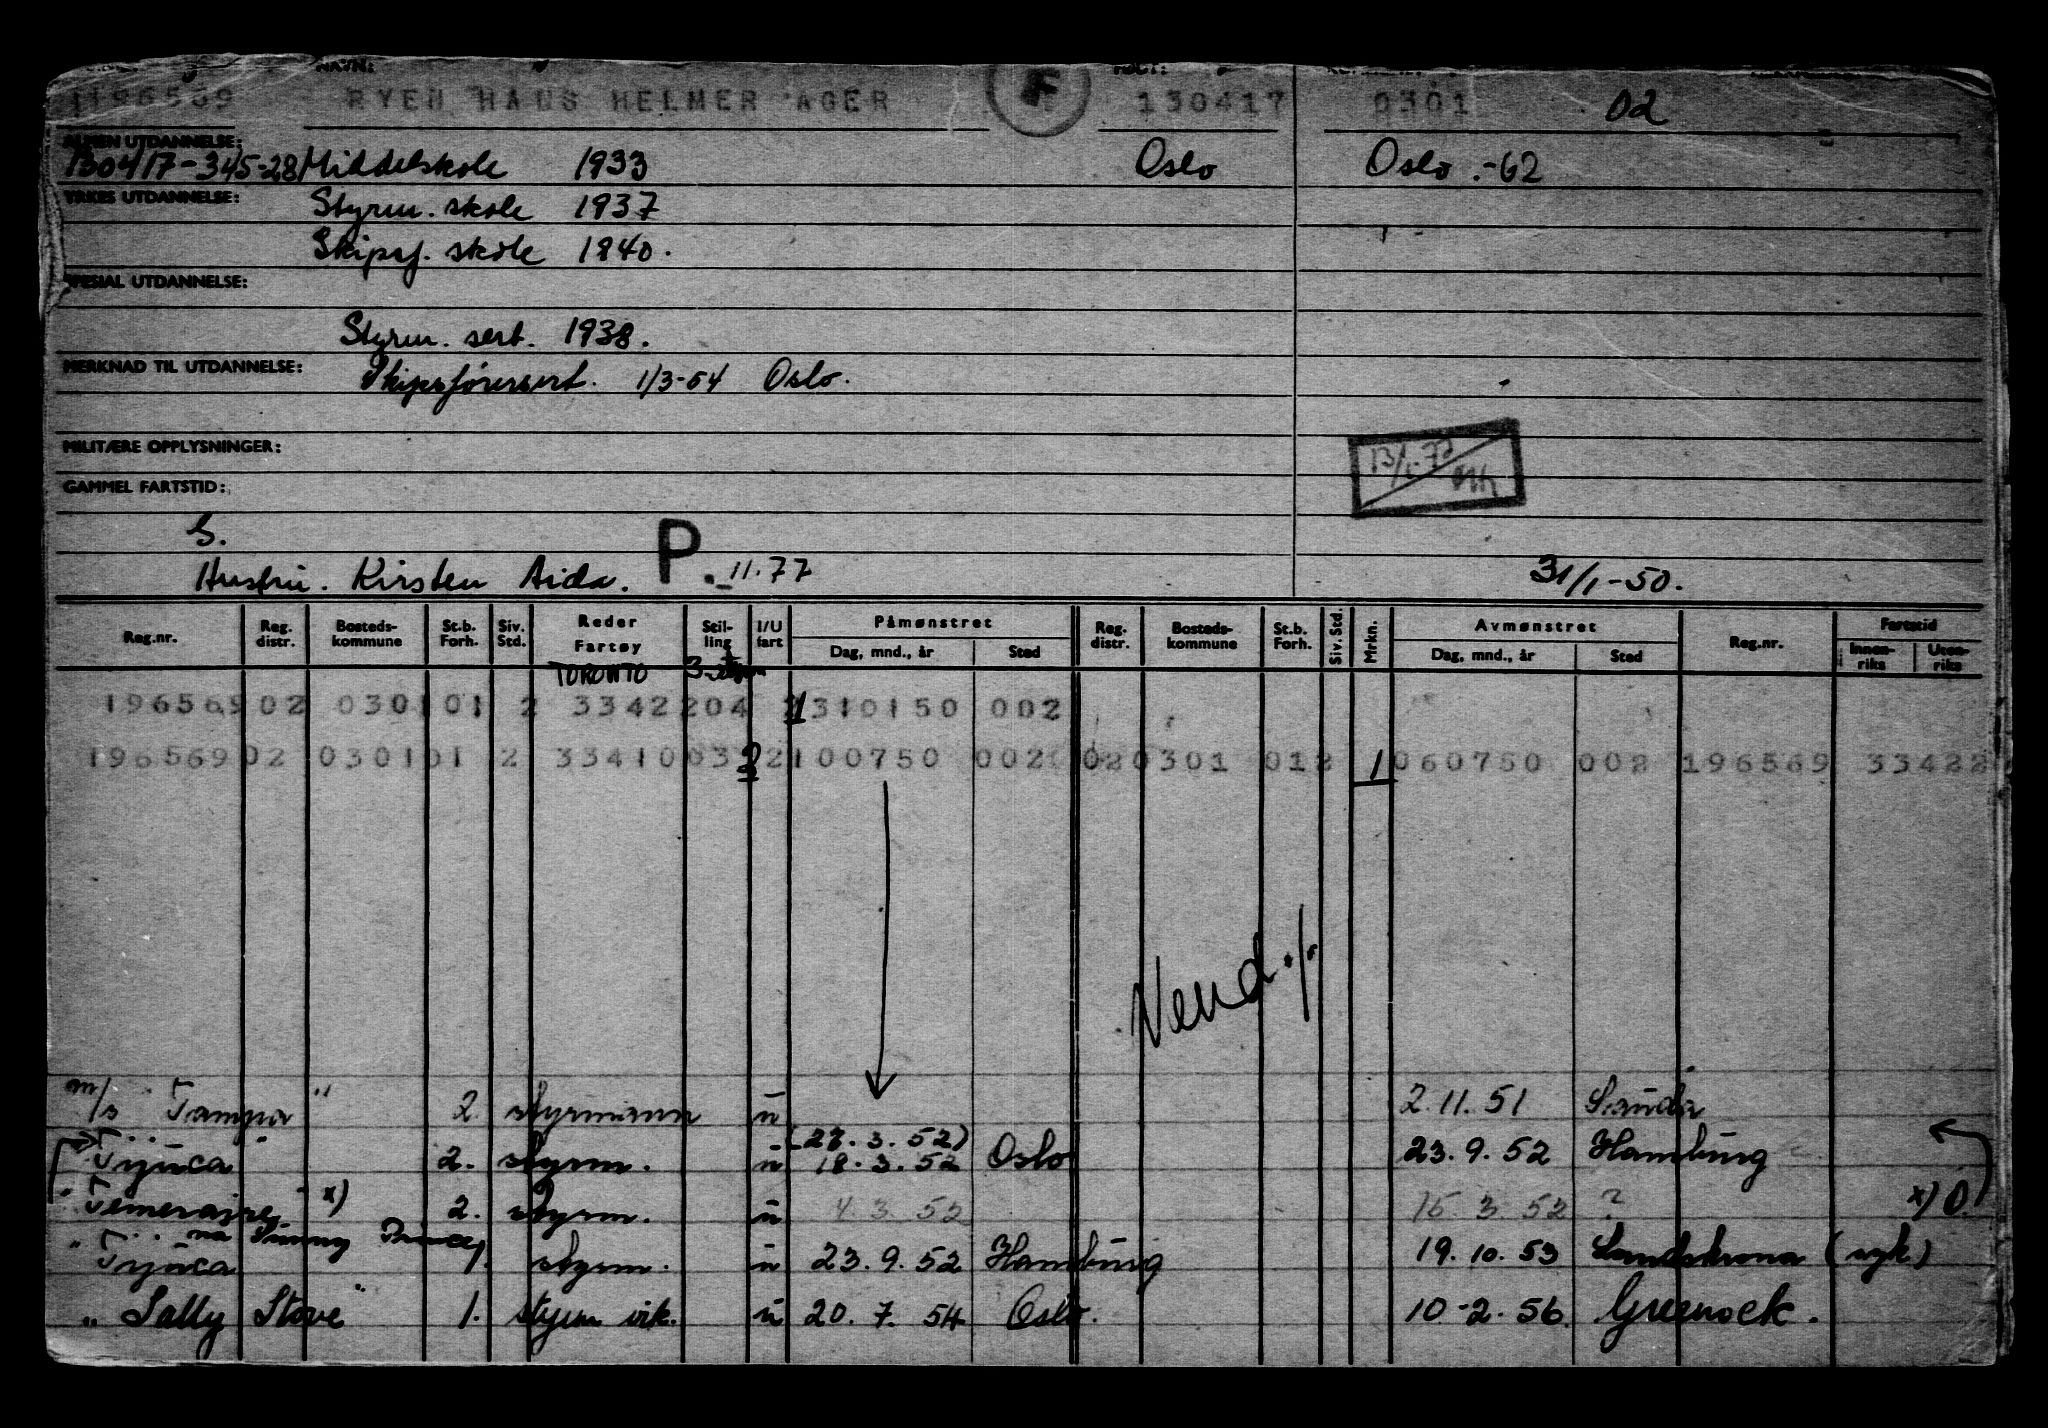 NAVN:
1196569 RYEN HANS HELMER AGER F 130417 0301 02
ALMEN UTDANNELSE:
130417-345-28 Middelskole 1933 Oslo Oslo.-62
YRKES UTDANNELSE: Styrm. skole 1937
Skipsf. skole 1940.
SPESIAL UTDANNELSE:
Styrm. sert. 1938.
MERKNAD TIL UTDANNELSE: Skipsførersert. 1/3-54 Oslo.
MILITÆRE OPPLYSNINGER:
GAMMEL FARTSTID:
S.
Hustru. Kirsten Aida. P. 11.77 31/1-50.
Reg.nr. Reg. distr. Bosteds-kommune St.b. Forh. Siv. Std. Reder Fartøy Stil-ling I/U fart Påmønstret Dag, mnd., år Sted Reg. distr. Bosteds-kommune St.b. Forh. Siv. Std. Mrkn. Avmønstret Dag, mnd., år Sted Reg.nr. Fartstid Innen-riks Uten-riks
TORONTO
196569 02 0301 01 2 3342 204 1 310150 002
196569 02 0301 01 2 3341003 2 100750 002 02 0301 01 2 1 060750 002 196569 33422
Vend ./.
m/s "Tampa" 2. styrmann u 2.11.51 Sauda
(27.3.52)
"Tijuca" 2. styrm. u 18.3.52 Oslo 23.9.52 Hamburg
"Temeraire" x) 2. styrm. u 4 3 52 15 3 52 ? x) O.
"Tijuca 1. styrm. u 23.9.52 Hamburg 19.10.53 Landskrona (syk)
" Sally Stove" 1. styrm vik. u 20.7.54 Oslo. 10-2.56. Greenock.